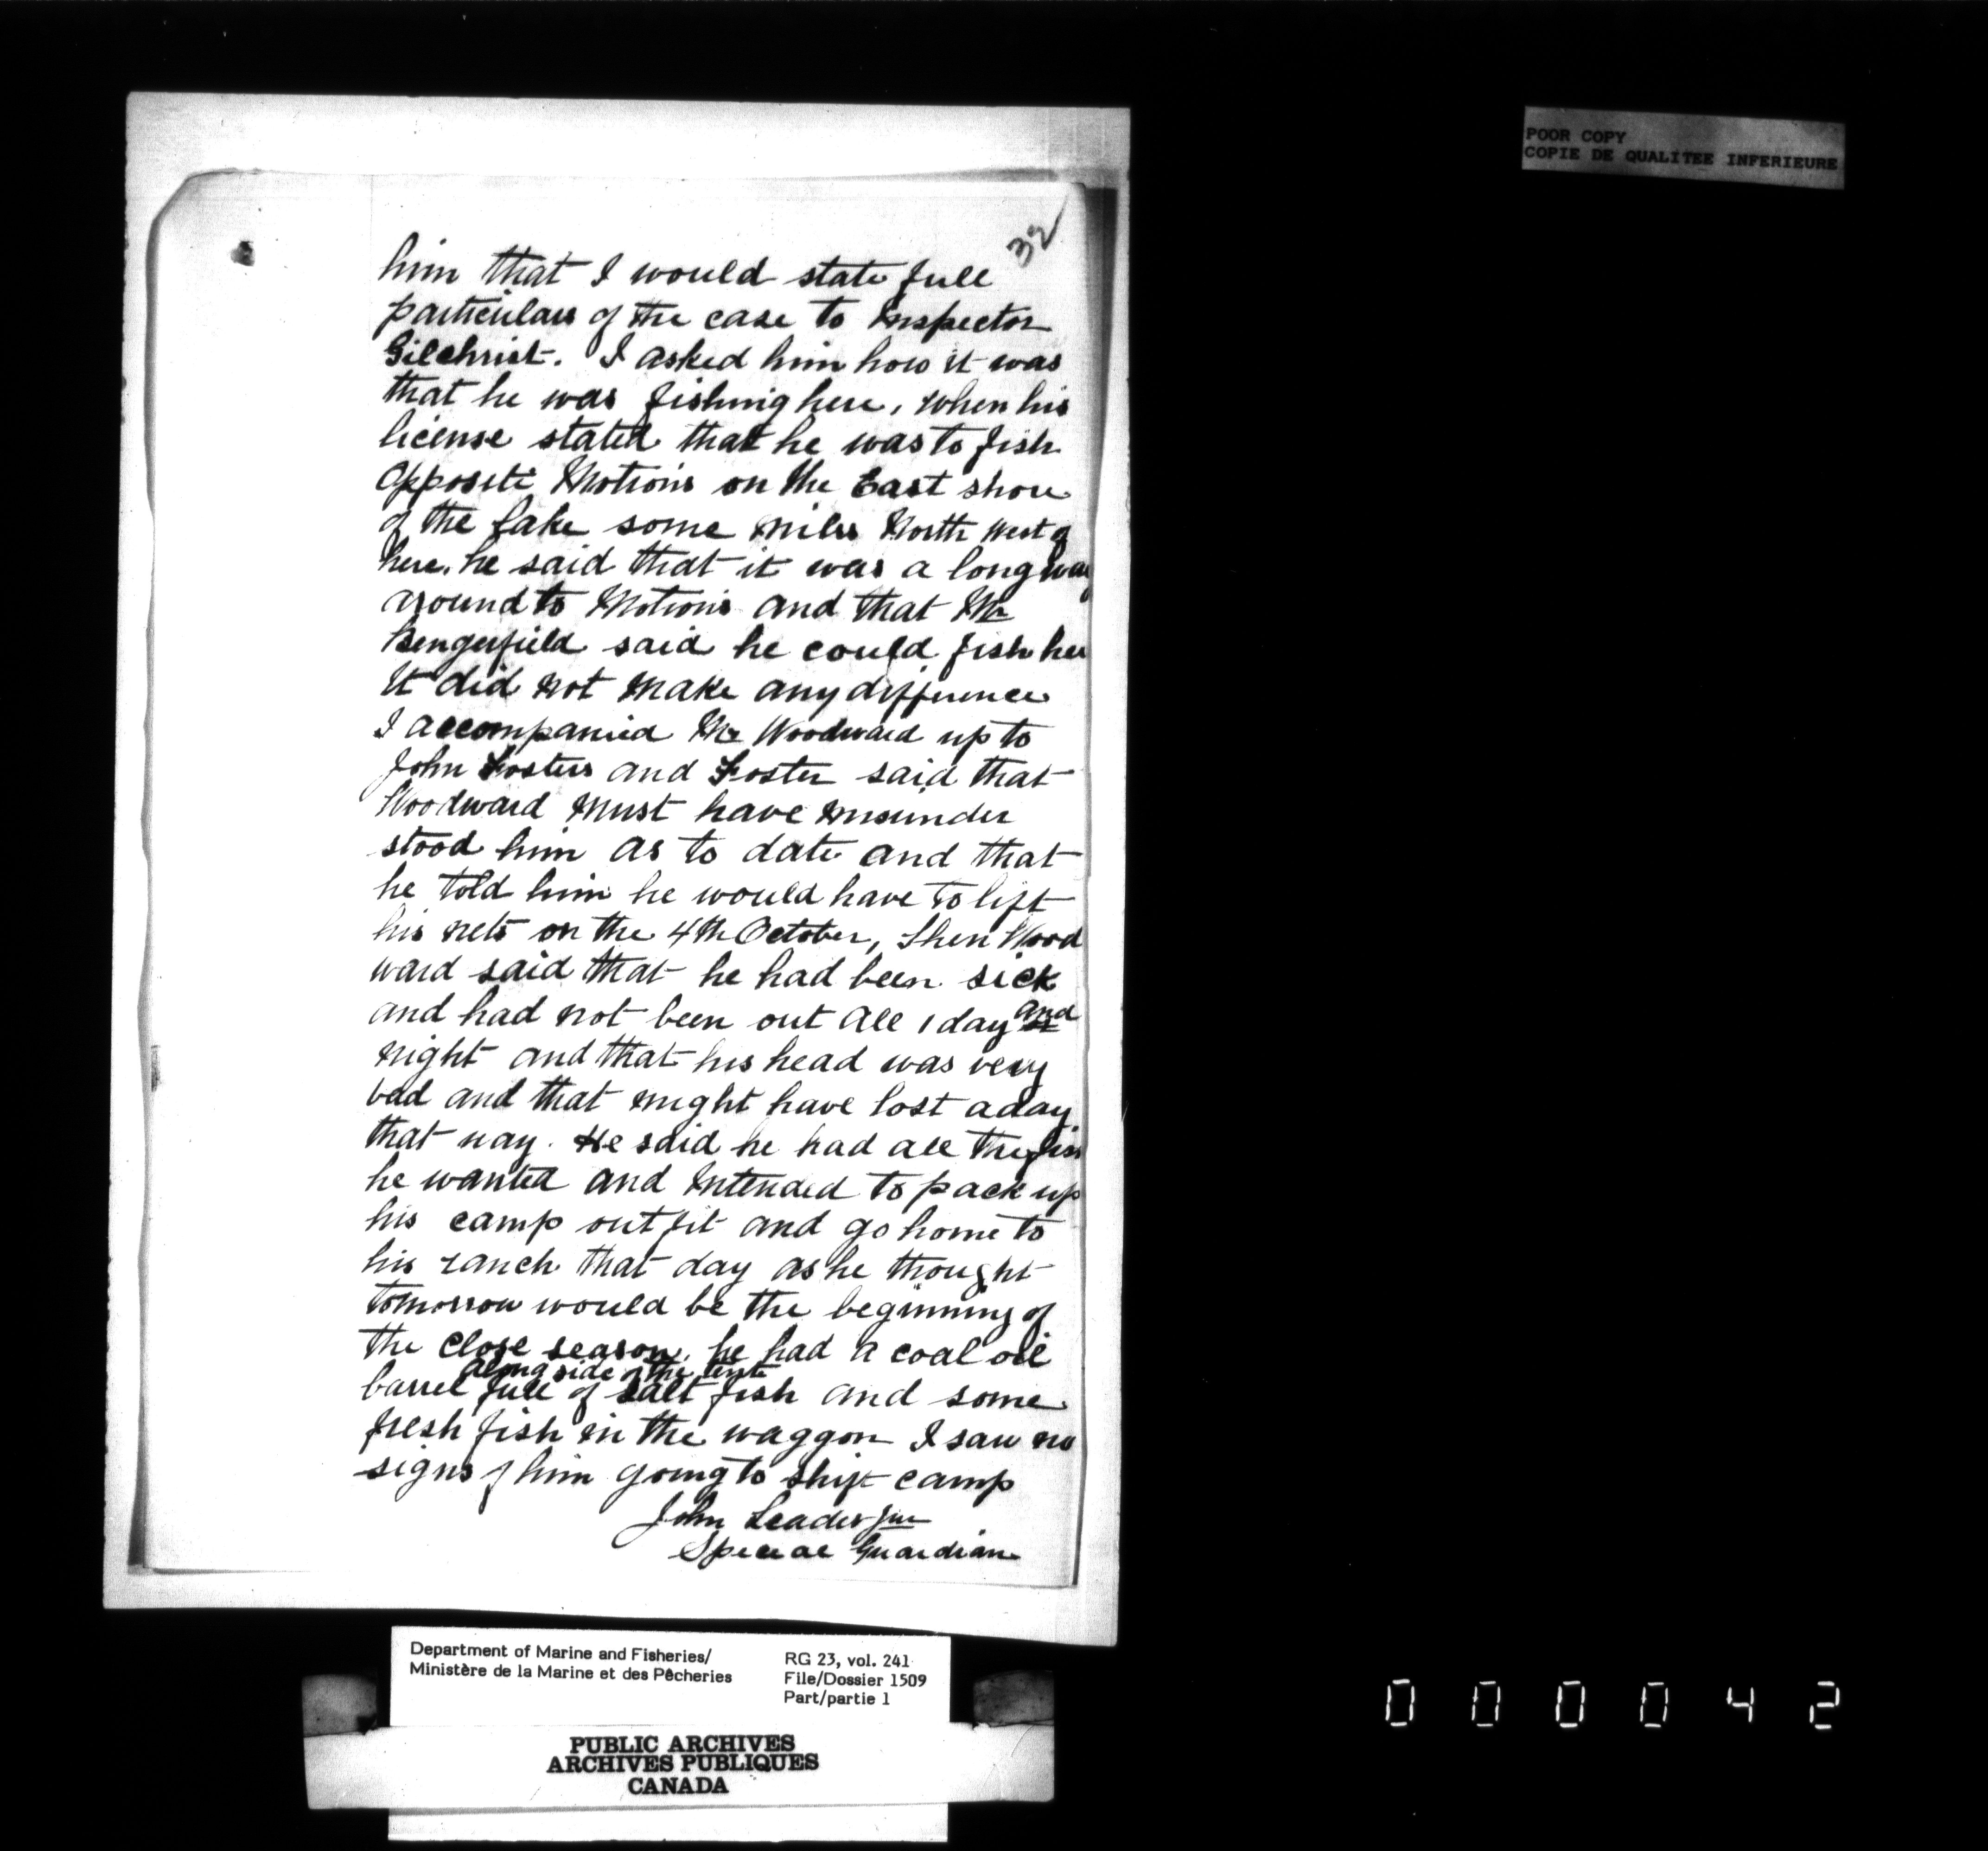 POOR COPY
COPIE DE QUALITEE INFERIEURE
32
him that I would state full
particulars of the case to Inspector
Gilchrist. I asked him how it was
that he was fishing here, when his
license stated that he was to fish
opposite Motions on the East shore
of the lake some miles North West of
here. he said that it was a long way
around to Motions and that Mr
said he could fish her
it did not make any difference
I accompanied Mr Woodward up to
John Fosters and Foster said that
Woodward must have misunder
stood him as to date and that
he told him he would have to lift
his nets on the 4th October, then Wood
ward said that he had been sick
and had not been out all 1 day and
night and that his head was very
bad and that might have lost a day
that way. He said he had all the fish
he wanted and intended to pack up
his camp outfit and go home to
his ranch that day as he thought
tomorrow would be the beginning of
the close season. he had a coal oil
along side of the tent
barrel full of salt fish and some
fresh fish in the waggon I saw no
signs of him going to shift camp
John Leader Jnr
Special Guardian
Department of Marine and Fisheries/
Ministère de la Marine et des Pêcheries
RG 23, vol. 241
File/Dossier 1509
Part/partie 1
PUBLIC ARCHIVES
ARCHIVES PUBLIQUES
CANADA
000042